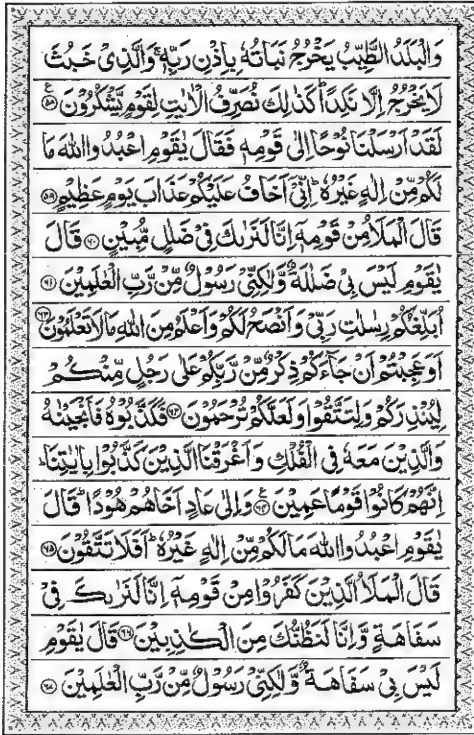 وَالْبَلَدُ الطَّيِّبُ يَخْرُجُ نَبَاتُهٗ بِاِذْنِ رَبِّهٖ ۚ وَالَّذِیْ خَبُثَ
لَا یَخْرُجُ اِلَّا نَكِدًا ؕ كَذٰلِكَ نُصَرِّفُ الْاٰیٰتِ لِقَوْمٍ یَّشْكُرُوْنَ ۟ع ۵۸
لَقَدْ اَرْسَلْنَا نُوْحًا اِلٰی قَوْمِهٖ فَقَالَ یٰقَوْمِ اعْبُدُوا اللّٰهَ مَا
لَكُمْ مِّنْ اِلٰهٍ غَیْرُهٗ ؕ اِنِّیْۤ اَخَافُ عَلَیْكُمْ عَذَابَ یَوْمٍ عَظِیْمٍ ۵۹
قَالَ الْمَلَاُ مِنْ قَوْمِهٖۤ اِنَّا لَنَرٰىكَ فِیْ ضَلٰلٍ مُّبِیْنٍ ۶۰ قَالَ
یٰقَوْمِ لَیْسَ بِیْ ضَلٰلَةٌ وَّلٰكِنِّیْ رَسُوْلٌ مِّنْ رَّبِّ الْعٰلَمِیْنَ ۶۱
اُبَلِّغُكُمْ رِسٰلٰتِ رَبِّیْ وَاَنْصَحُ لَكُمْ وَاَعْلَمُ مِنَ اللّٰهِ مَا لَا تَعْلَمُوْنَ ۶۲
اَوَعَجِبْتُمْ اَنْ جَآءَكُمْ ذِكْرٌ مِّنْ رَّبِّكُمْ عَلٰی رَجُلٍ مِّنْكُمْ
لِیُنْذِرَكُمْ وَلِتَتَّقُوْا وَلَعَلَّكُمْ تُرْحَمُوْنَ ۶۳ فَكَذَّبُوْهُ فَاَنْجَیْنٰهُ
وَالَّذِیْنَ مَعَهٗ فِی الْفُلْكِ وَاَغْرَقْنَا الَّذِیْنَ كَذَّبُوْا بِاٰیٰتِنَا ؕ
اِنَّهُمْ كَانُوْا قَوْمًا عَمِیْنَ ع ۶۴ وَاِلٰی عَادٍ اَخَاهُمْ هُوْدًا ؕ قَالَ
یٰقَوْمِ اعْبُدُوا اللّٰهَ مَا لَكُمْ مِّنْ اِلٰهٍ غَیْرُهٗ ؕ اَفَلَا تَتَّقُوْنَ ۶۵
قَالَ الْمَلَاُ الَّذِیْنَ كَفَرُوْا مِنْ قَوْمِهٖۤ اِنَّا لَنَرٰىكَ فِیْ
سَفَاهَةٍ وَّاِنَّا لَنَظُنُّكَ مِنَ الْكٰذِبِیْنَ ۶۶ قَالَ یٰقَوْمِ
لَیْسَ بِیْ سَفَاهَةٌ وَّلٰكِنِّیْ رَسُوْلٌ مِّنْ رَّبِّ الْعٰلَمِیْنَ ۶۷